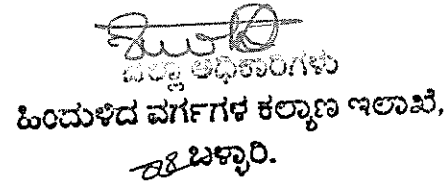 ಜಿಲ್ಲಾ ಅಧಿಕಾರಿಗಳು
ಹಿಂದುಳಿದ ವರ್ಗಗಳ ಕಲ್ಯಾಣ ಇಲಾಖೆ,
ಬಳ್ಳಾರಿ.